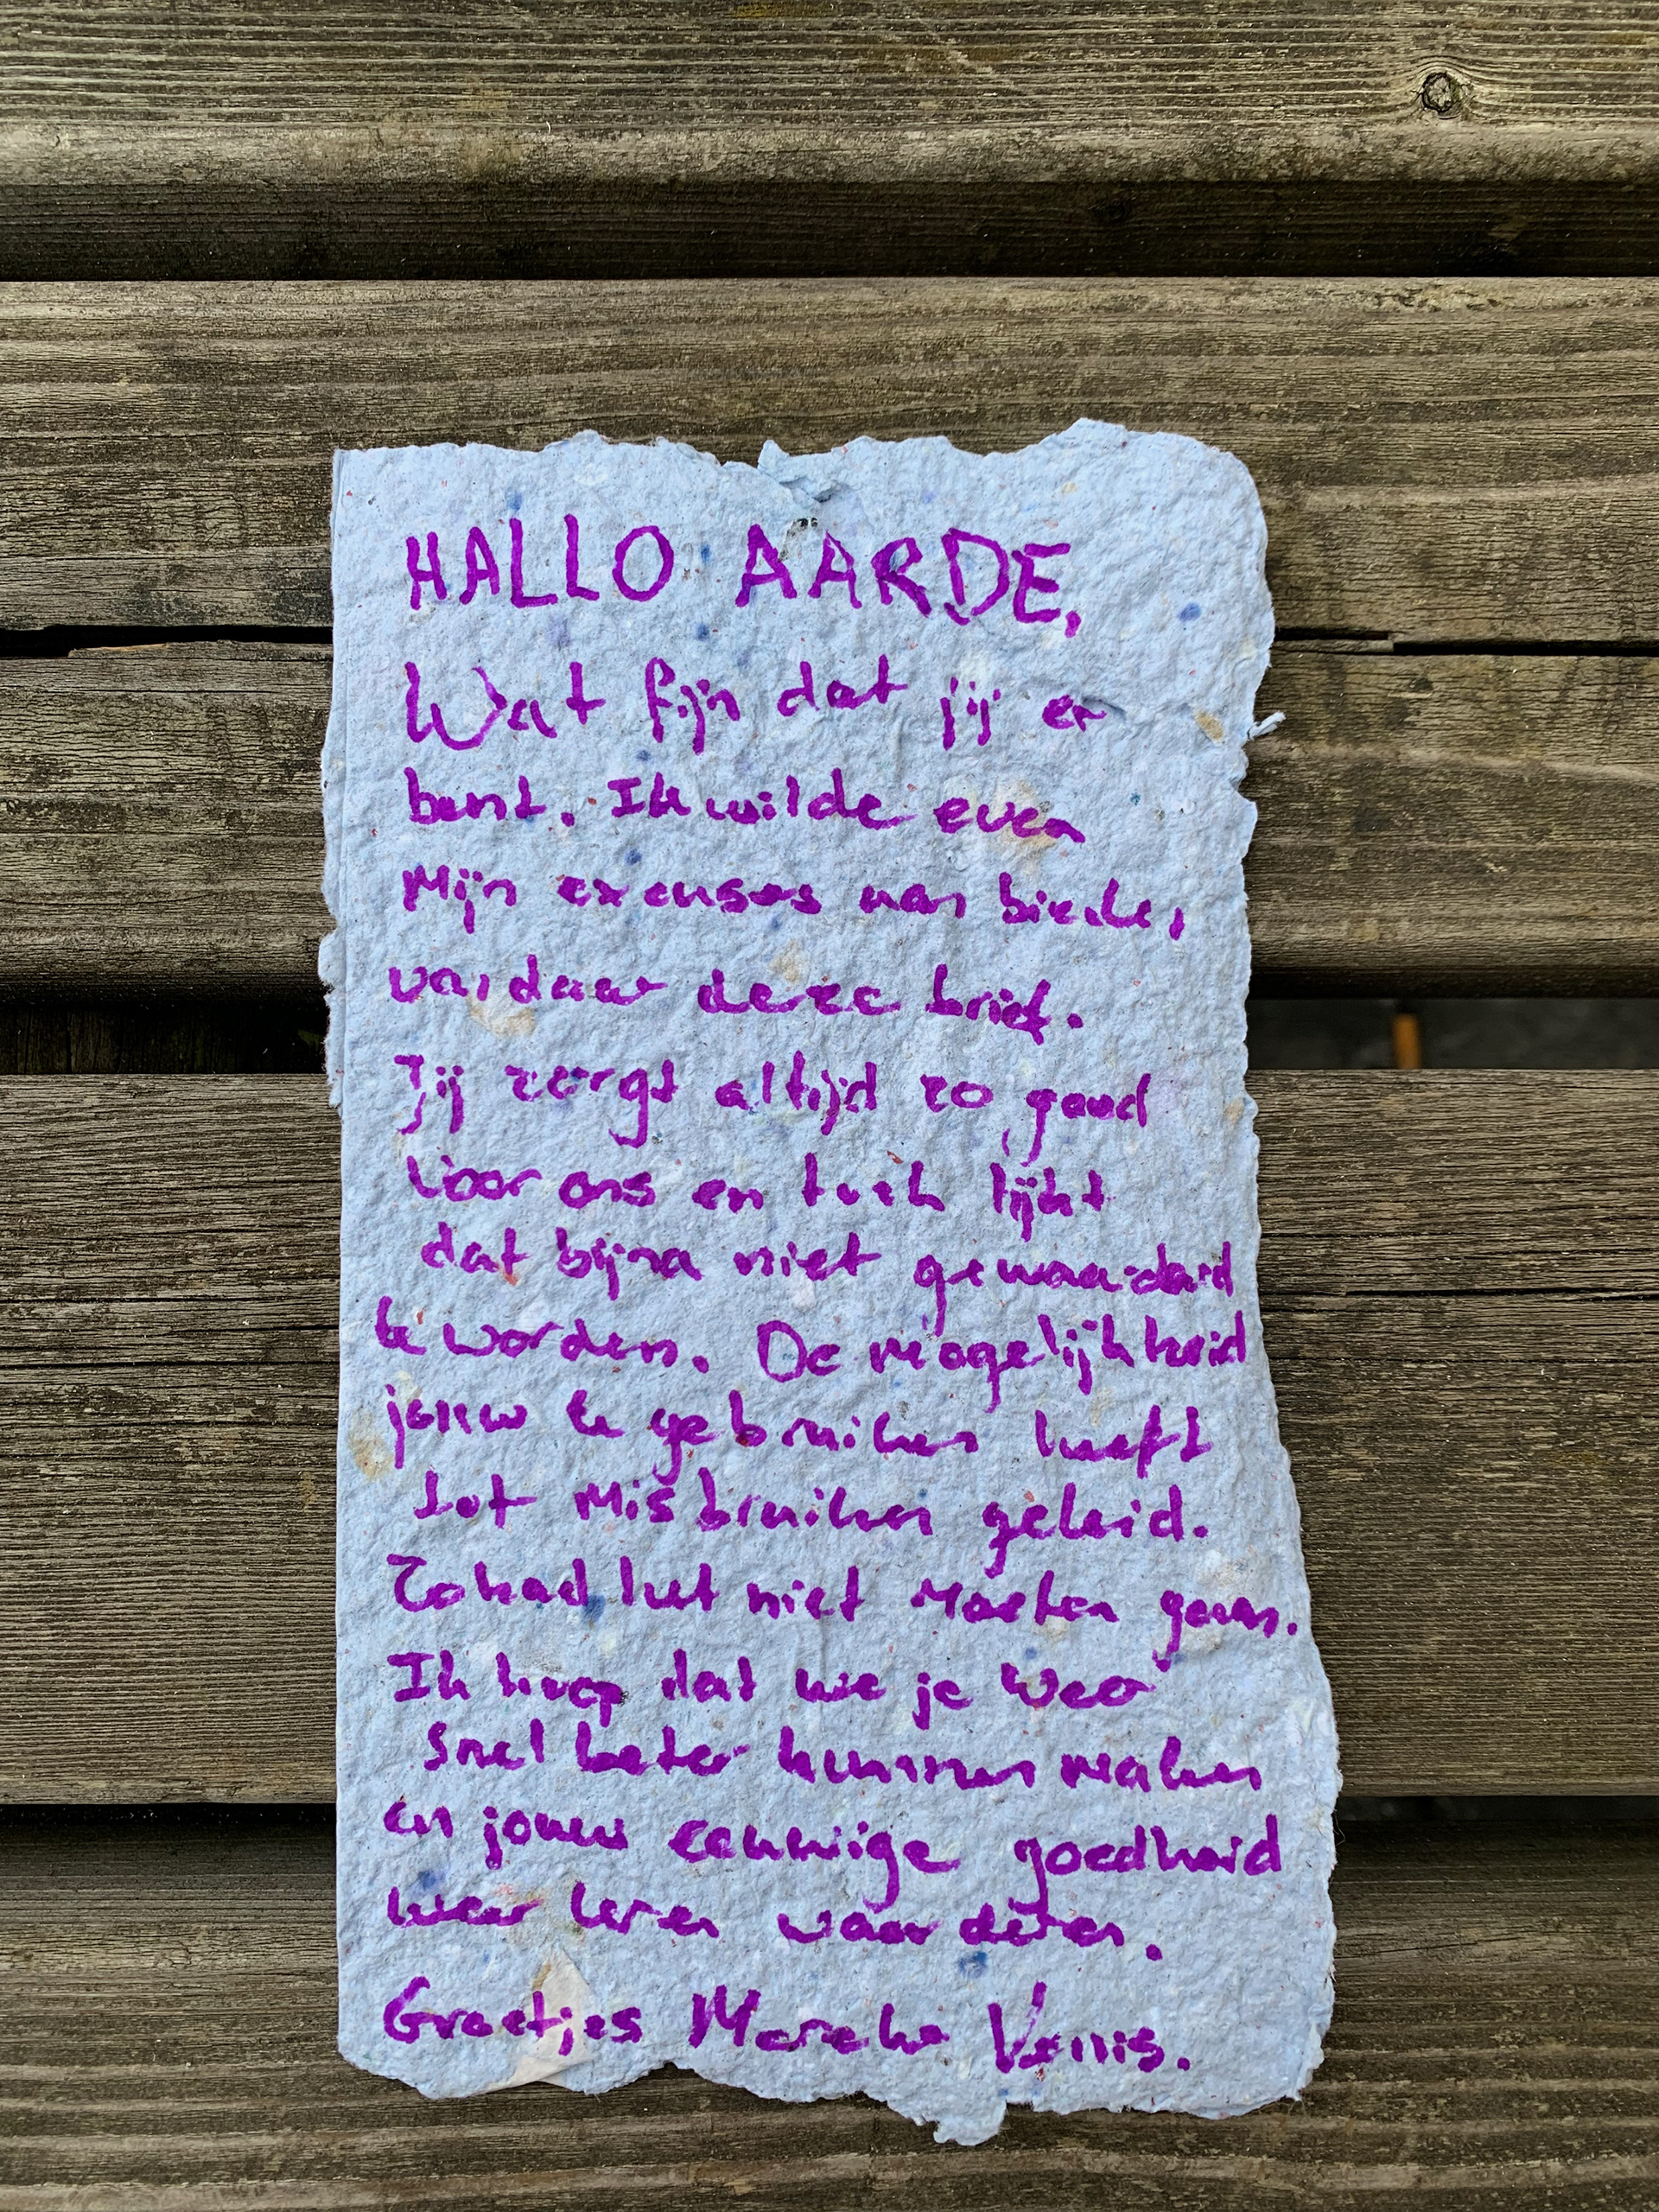 HALLO AARDE,
Wat fijn dat jij er
bent. Ik wilde even
Mijn excuses aan bieden,
vandaar deze brief.
Jij zorgt altijd zo goed
voor ons en toch lijkt
dat bijna niet gewaardeerd
te worden. De mogelijkheid
jouw te gebruiken heeft
tot Misbruiken geleid.
Zo had het niet Moeten gaan.
Ik hoop dat we je weer
snel beter kunnen maken
en jouw eeuwige goedheid
weer leren waarderen.
Groetjes